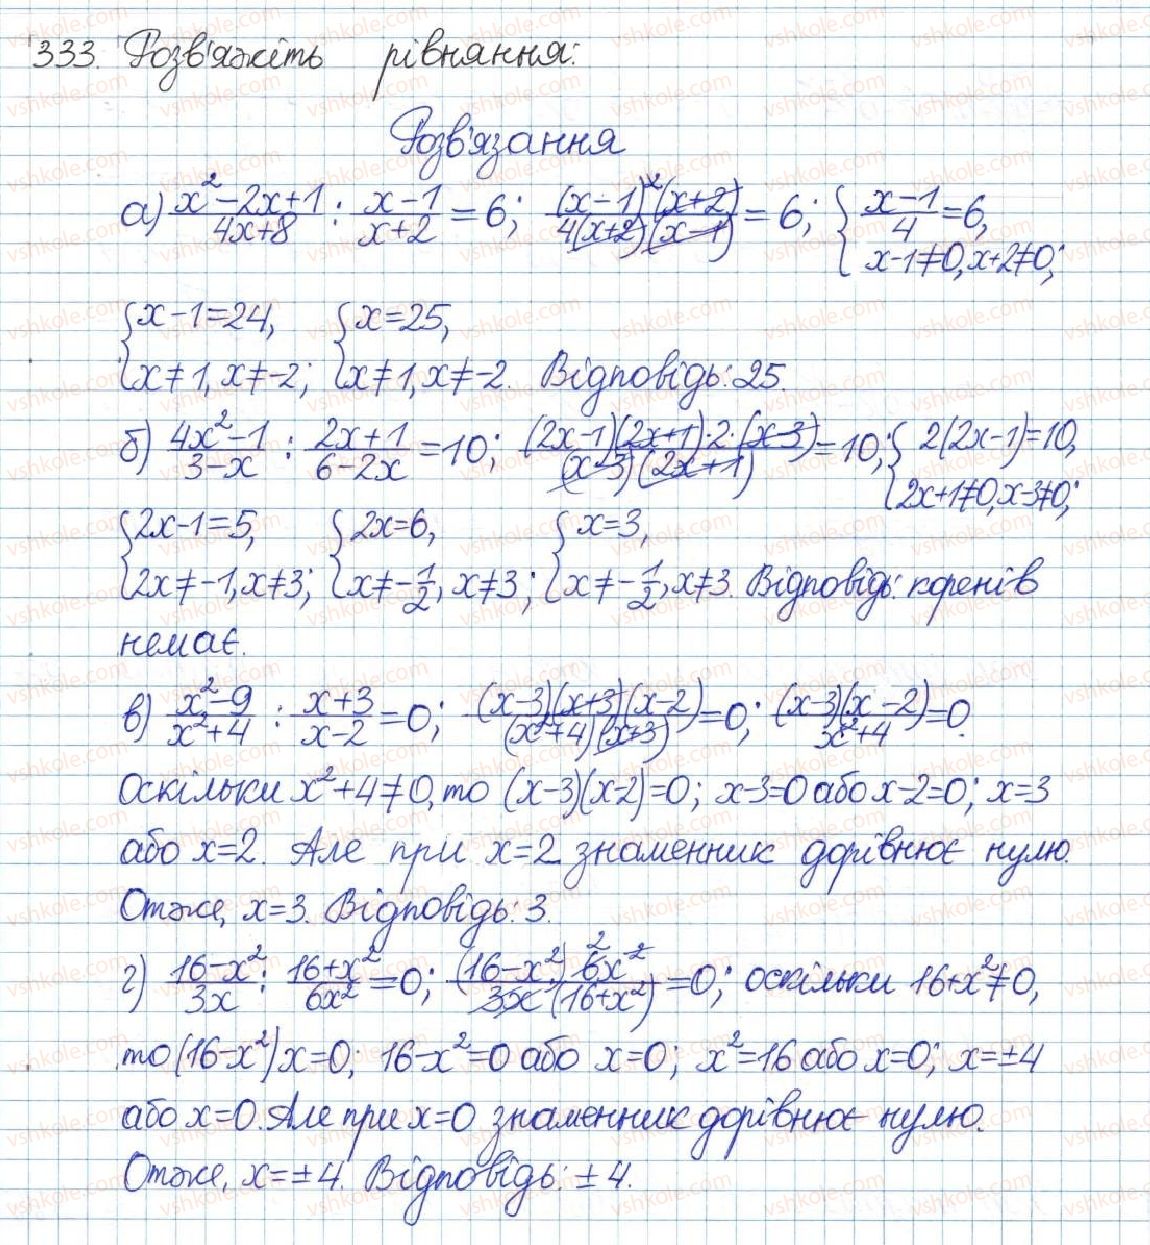 333. Розв'яжіть рівняння:
Розв'язання
а) (x²-2x+1)/(4x+8) : (x-1)/(x+2) = 6; ((x-1)²(x+2))/(4(x+2)(x-1)) = 6; { (x-1)/4 = 6, x-1≠0, x+2≠0;
{ x-1=24, x≠1, x≠-2; { x=25, x≠1, x≠-2. Відповідь: 25.
б) (4x²-1)/(3-x) : (2x+1)/(6-2x) = 10; ((2x-1)(2x+1)·2·(x-3))/((x-3)(2x+1)) = 10; { 2(2x-1)=10, 2x+1≠0, x-3≠0;
{ 2x-1=5, 2x≠-1, x≠3; { 2x=6, x≠-1/2, x≠3; { x=3, x≠-1/2, x≠3. Відповідь: коренів
немає.
в) (x²-9)/(x²+4) : (x+3)/(x-2) = 0; ((x-3)(x+3)(x-2))/((x²+4)(x+3)) = 0; ((x-3)(x-2))/(x²+4) = 0.
Оскільки x²+4≠0, то (x-3)(x-2)=0; x-3=0 або x-2=0; x=3
або x=2. Але при x=2 знаменник дорівнює нулю.
Отже, x=3. Відповідь: 3.
г) (16-x²)/(3x) : (16+x²)/(6x²) = 0; ((16-x²) 6x²)/(3x (16+x²)) = 0; оскільки 16+x²≠0,
то (16-x²)x=0; 16-x²=0 або x=0; x²=16 або x=0; x=±4
або x=0. Але при x=0 знаменник дорівнює нулю.
Отже, x=±4. Відповідь: ±4.